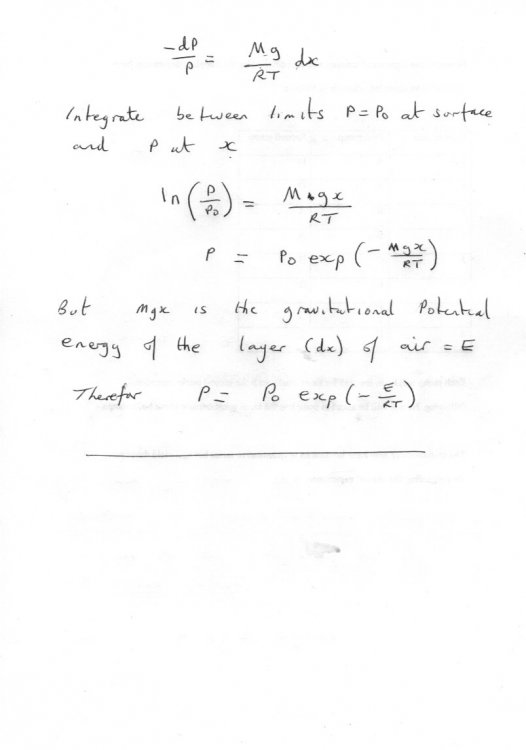 -dP/P = Mg/RT dx
Integrate between limits P = P₀ at surface
and P at x
ln(P/P₀) = M gx/RT
P = P₀ exp(- Mgx/RT)
But Mgx is the gravitational Potential
energy of the layer (dx) of air = E
Therefor P = P₀ exp(- E/RT)